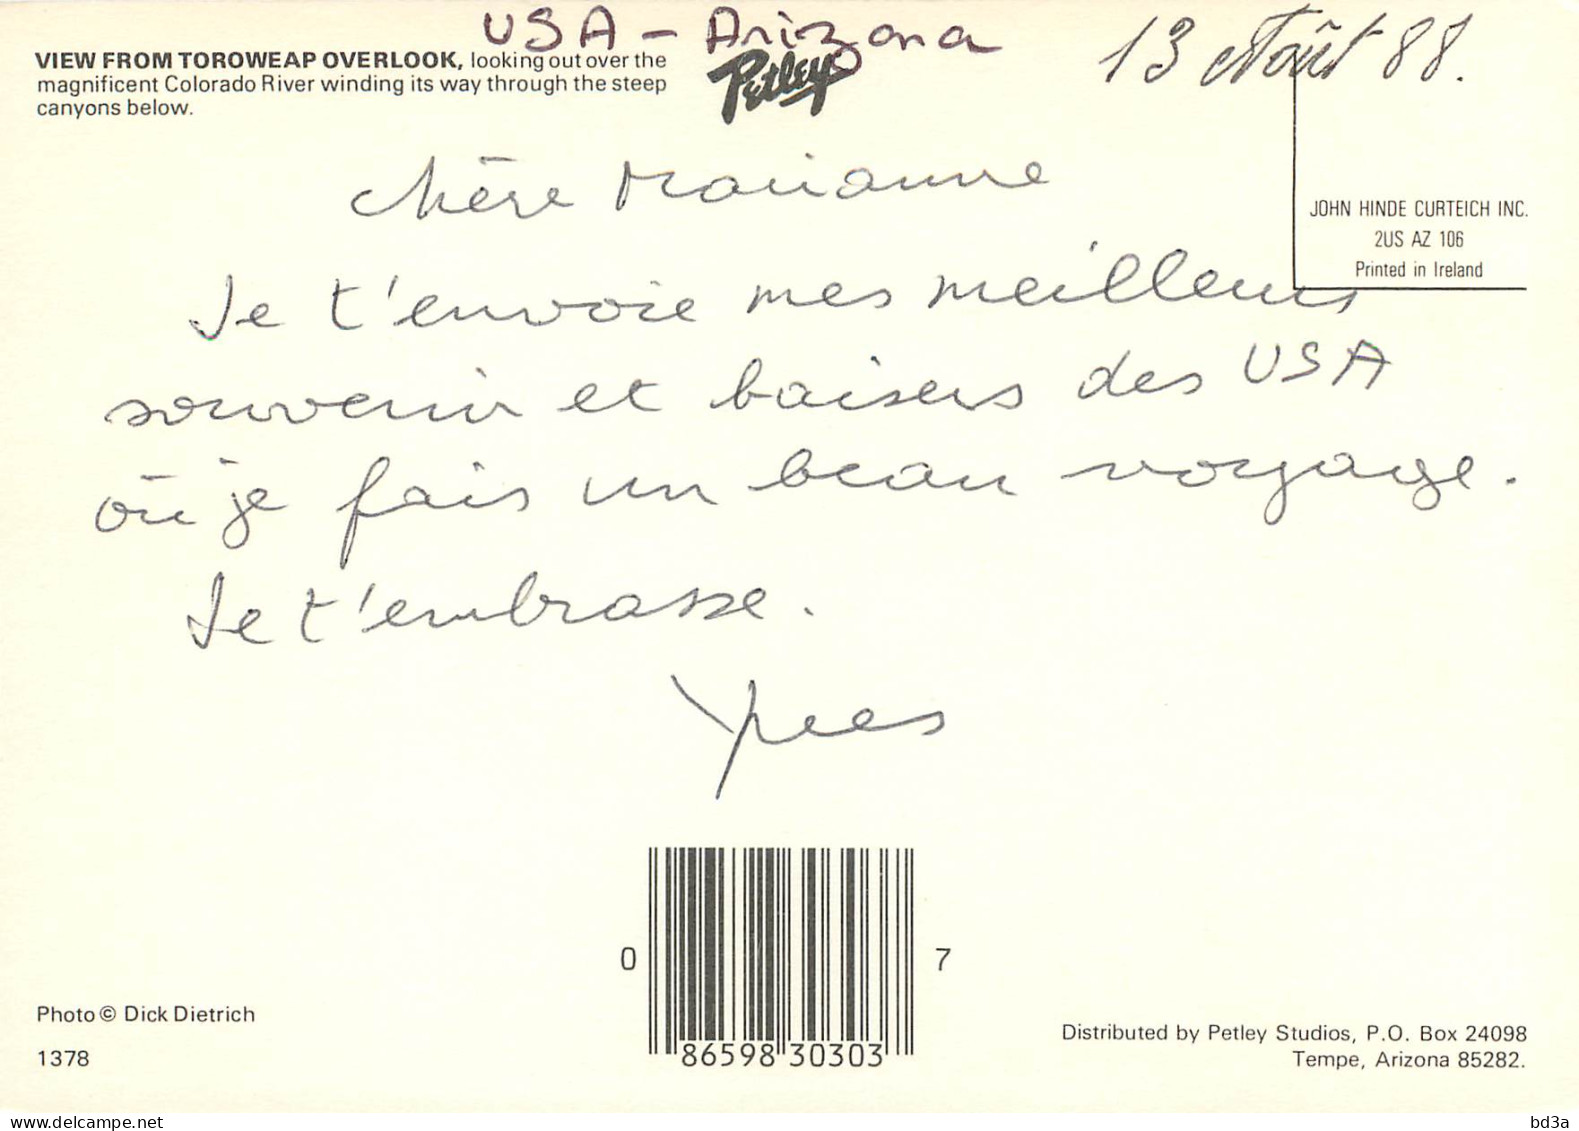 USA - Arizona
13 Août 88.
VIEW FROM TOROWEAP OVERLOOK, looking out over the
magnificent Colorado River winding its way through the steep
canyons below.
Petley
JOHN HINDE CURTEICH INC.
2US AZ 106
Printed in Ireland
Chère Marianne
Je t'envoie mes meilleurs
souvenir et baisers des USA
où je fais un beau voyage.
Je t'embrasse.
Yves
0 86598 30303 7
Photo © Dick Dietrich
1378
Distributed by Petley Studios, P.O. Box 24098
Tempe, Arizona 85282.
www.delcampe.net
bd3a